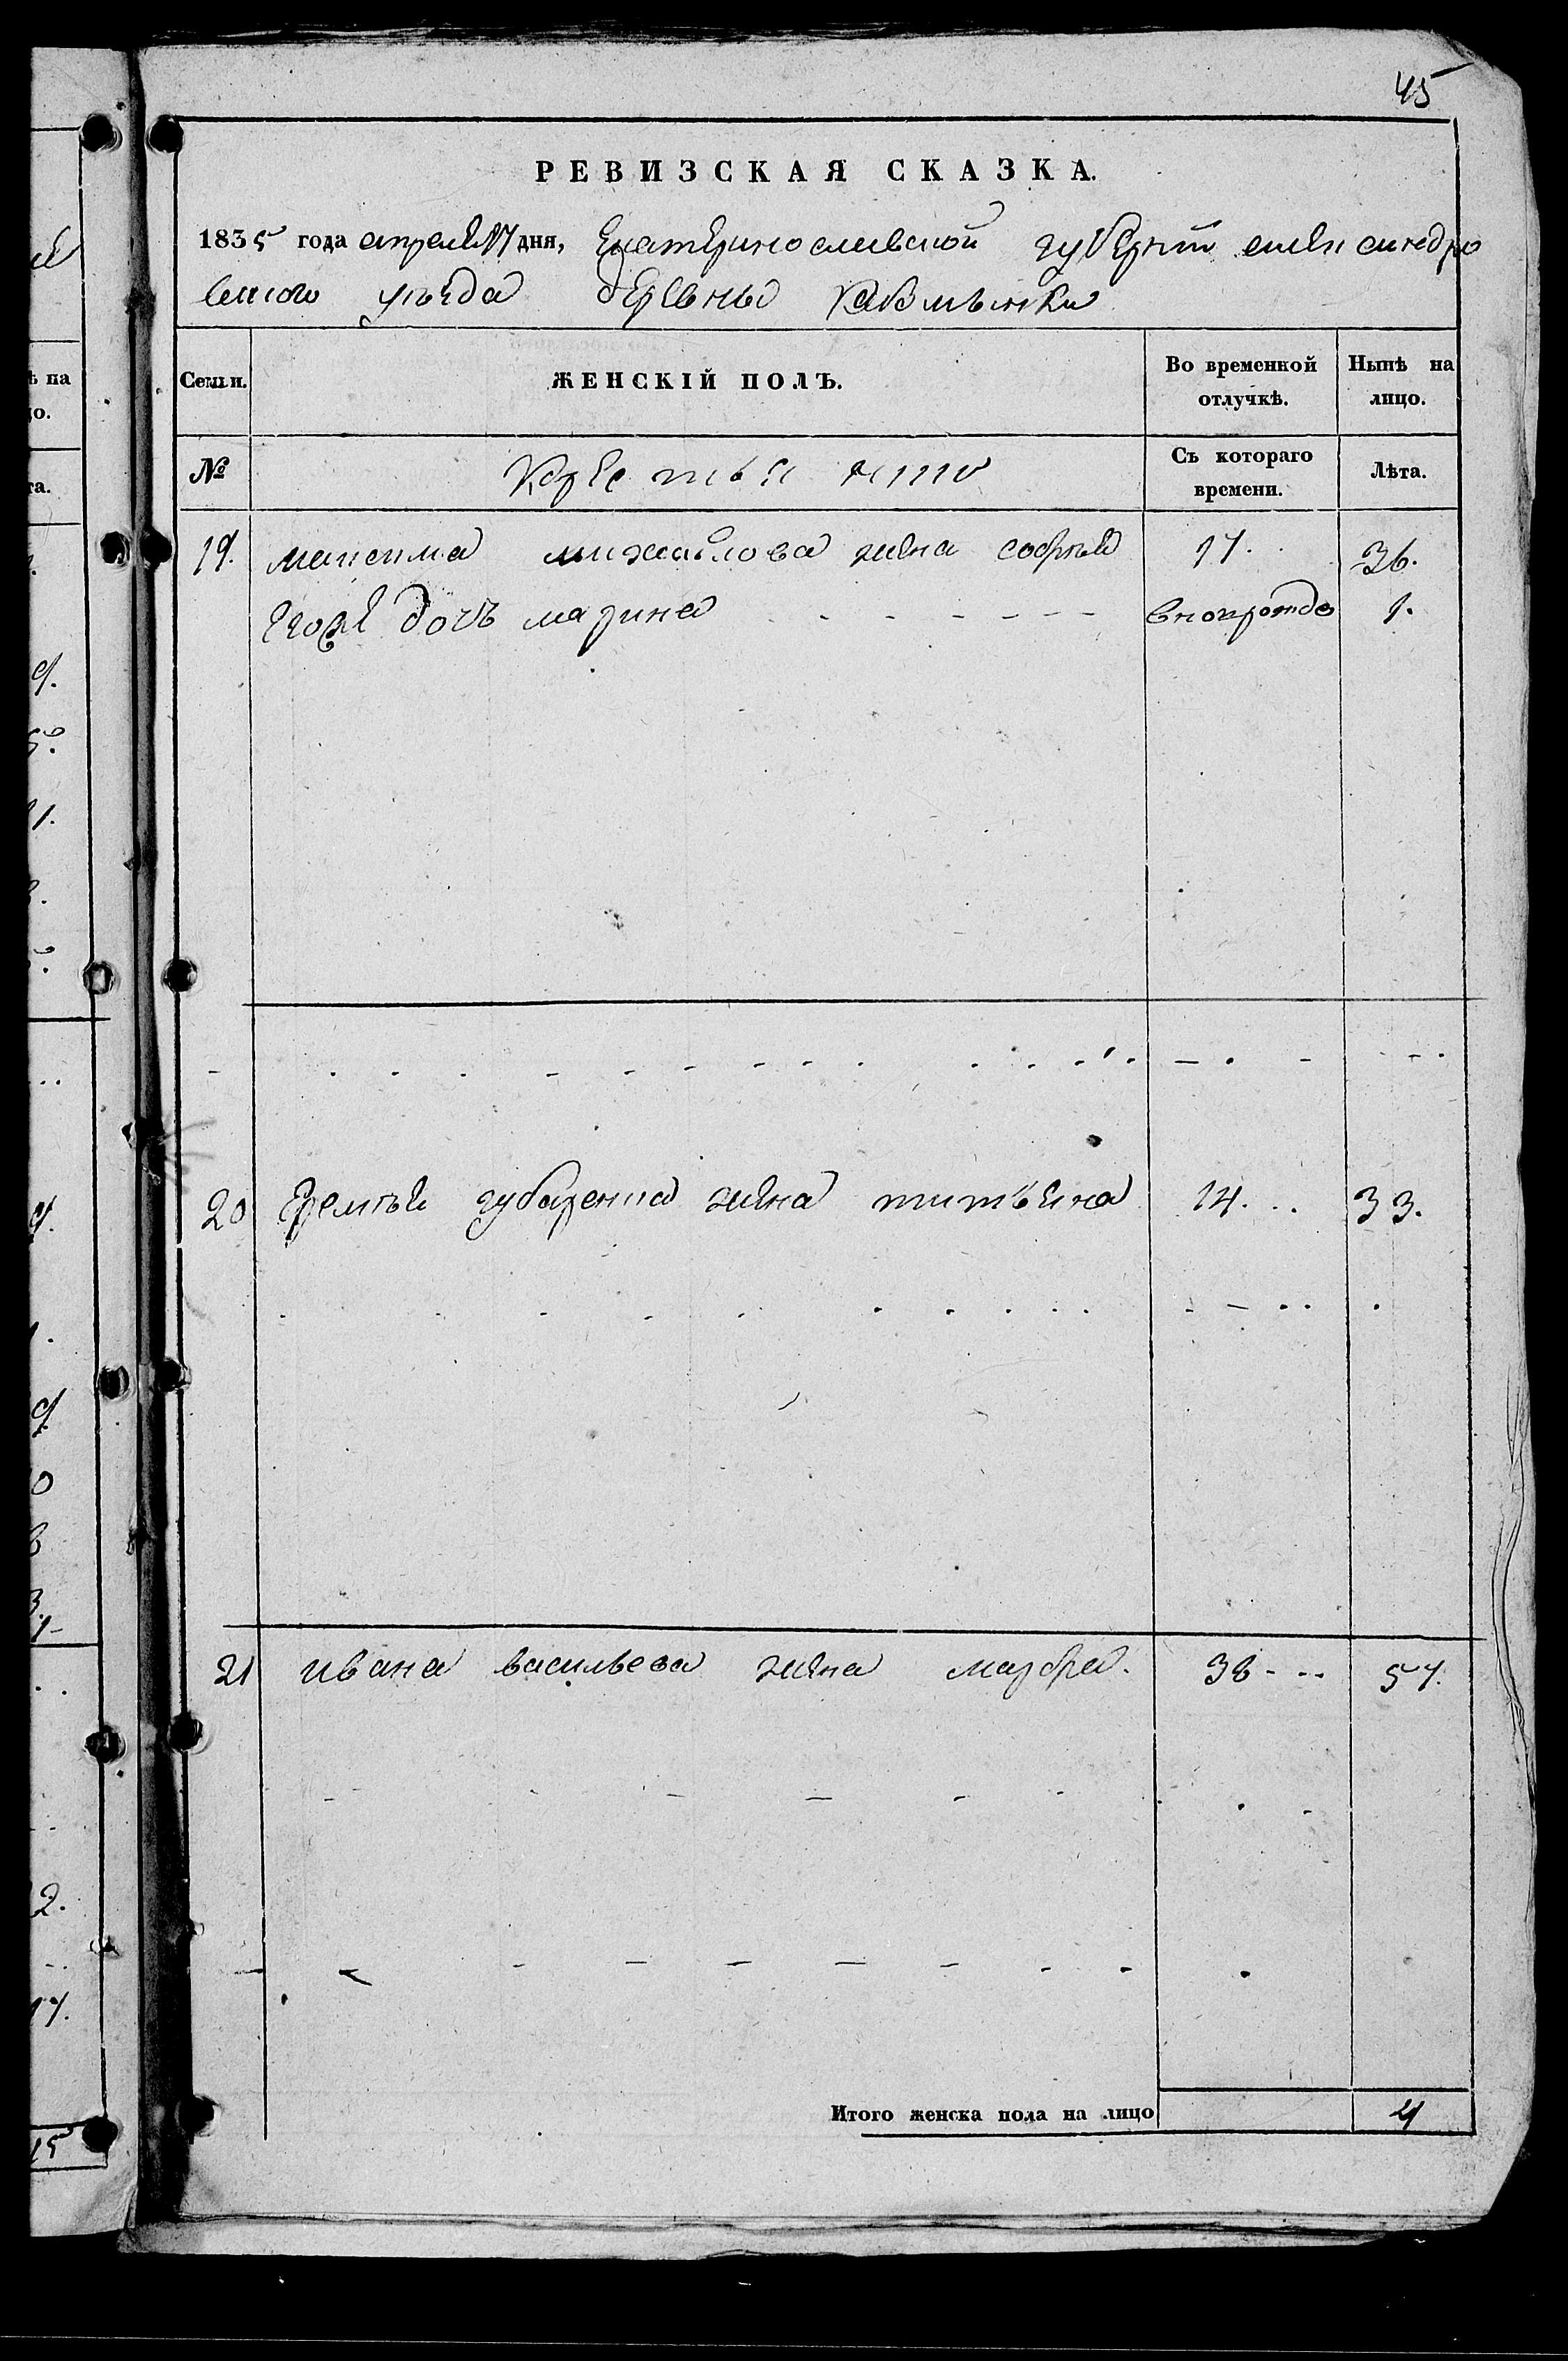 45
РЕВИЗСКАЯ СКАЗКА.
1835 года апреля 17 дня, Екатеринославской губернии александро
вского уѣзда деревны
Семьи. ЖЕНСКІЙ ПОЛЪ. Во временной отлучкѣ. Нынѣ на лицо.
№ Съ котораго времени. Лѣта.
19. максима михайлова жена софия 17. 36.
его же дочъ марина вновърожде 1.
20 жена 14. 33.
21 ивана васильева жена марфа. 38 57.
Итого женска пола на лицо 4
ѣ на
о.
та.
9.
2.
17.
15